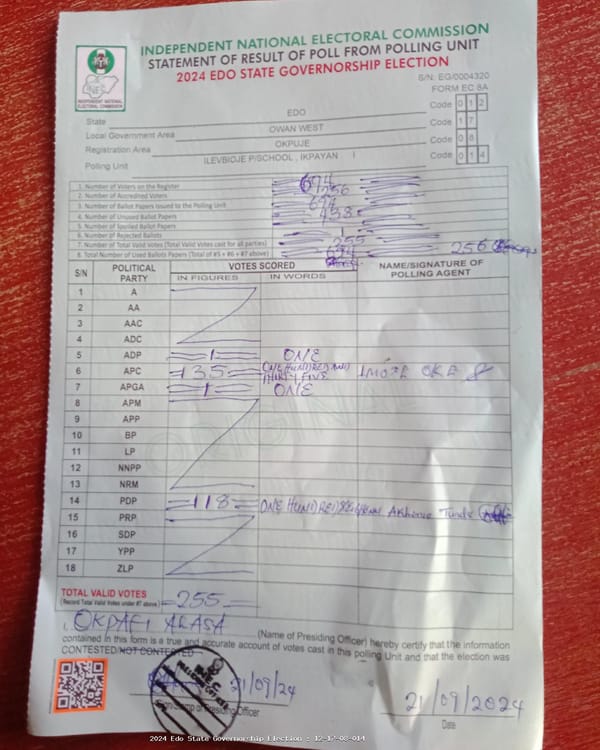 INDEPENDENT NATIONAL ELECTORAL COMMISSION
STATEMENT OF RESULT OF POLL FROM POLLING UNIT
2024 EDO STATE GOVERNORSHIP ELECTION
S/N: EG/0004320
FORM EC 8A
INEC
INDEPENDENT NATIONAL ELECTORAL COMMISSION
State EDO Code 0 1 2
Local Government Area OWAN WEST Code 1 7
Registration Area OKPUJE Code 0 8
Polling Unit ILEVBIOJE P/SCHOOL , IKPAYAN I Code 0 1 4
1. Number of Voters on the Register 694
2. Number of Accredited Voters 256
3. Number of Ballot Papers Issued to the Polling Unit 694
4. Number of Unused Ballot Papers 438
5. Number of Spoiled Ballot Papers
6. Number of Rejected Ballots 1
7. Number of Total Valid Votes (Total Valid Votes cast for all parties) 255
8. Total Number of Used Ballots Papers (Total of #5 + #6 + #7 above) 256
S/N POLITICAL PARTY VOTES SCORED NAME/SIGNATURE OF POLLING AGENT
IN FIGURES IN WORDS
1 A
2 AA
3 AAC
4 ADC
5 ADP 1 ONE
6 APC 135 ONE HUNDRED AND THIRTY FIVE
7 APGA 1 ONE
8 APM
9 APP
10 BP
11 LP
12 NNPP
13 NRM
14 PDP 118 ONE HUNDRED Tunde
15 PRP
16 SDP
17 YPP
18 ZLP
TOTAL VALID VOTES 255
(Record Total Valid Votes under #7 above)
I, OKPAFI ARASA (Name of Presiding Officer) hereby certify that the information
contained in this form is a true and accurate account of votes cast in this polling Unit and that the election was
CONTESTED/NOT CONTESTED
21/09/24
21/09/2024
Sign/Stamp of Presiding Officer
Date
2024 Edo State Governorship Election : 12-17-08-014